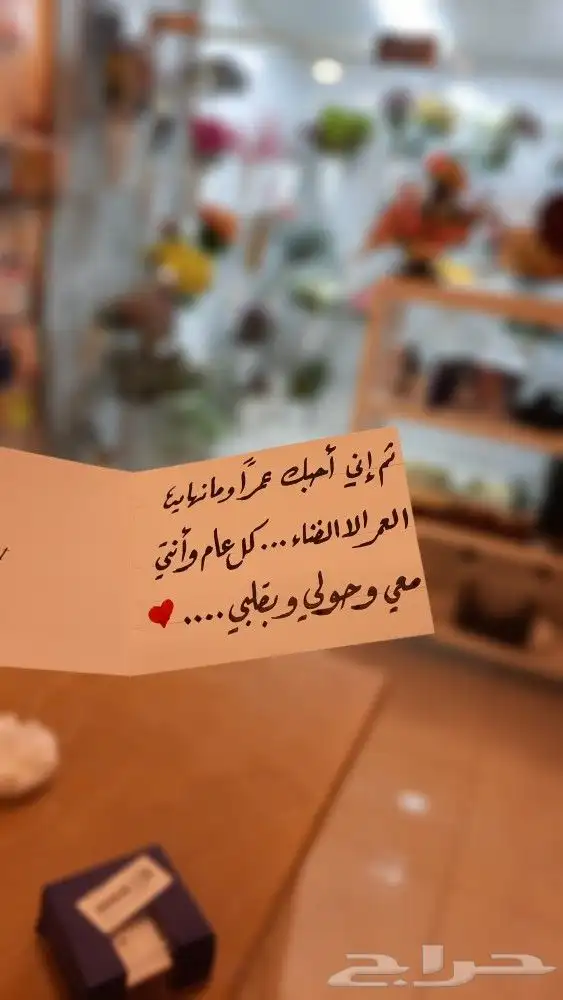 ثم إني أحبك عمرًا وما نهاية
العمر الا الفناء ... كل عام وأنتي
معي وحولي وبقلبي .... ❤
حراج